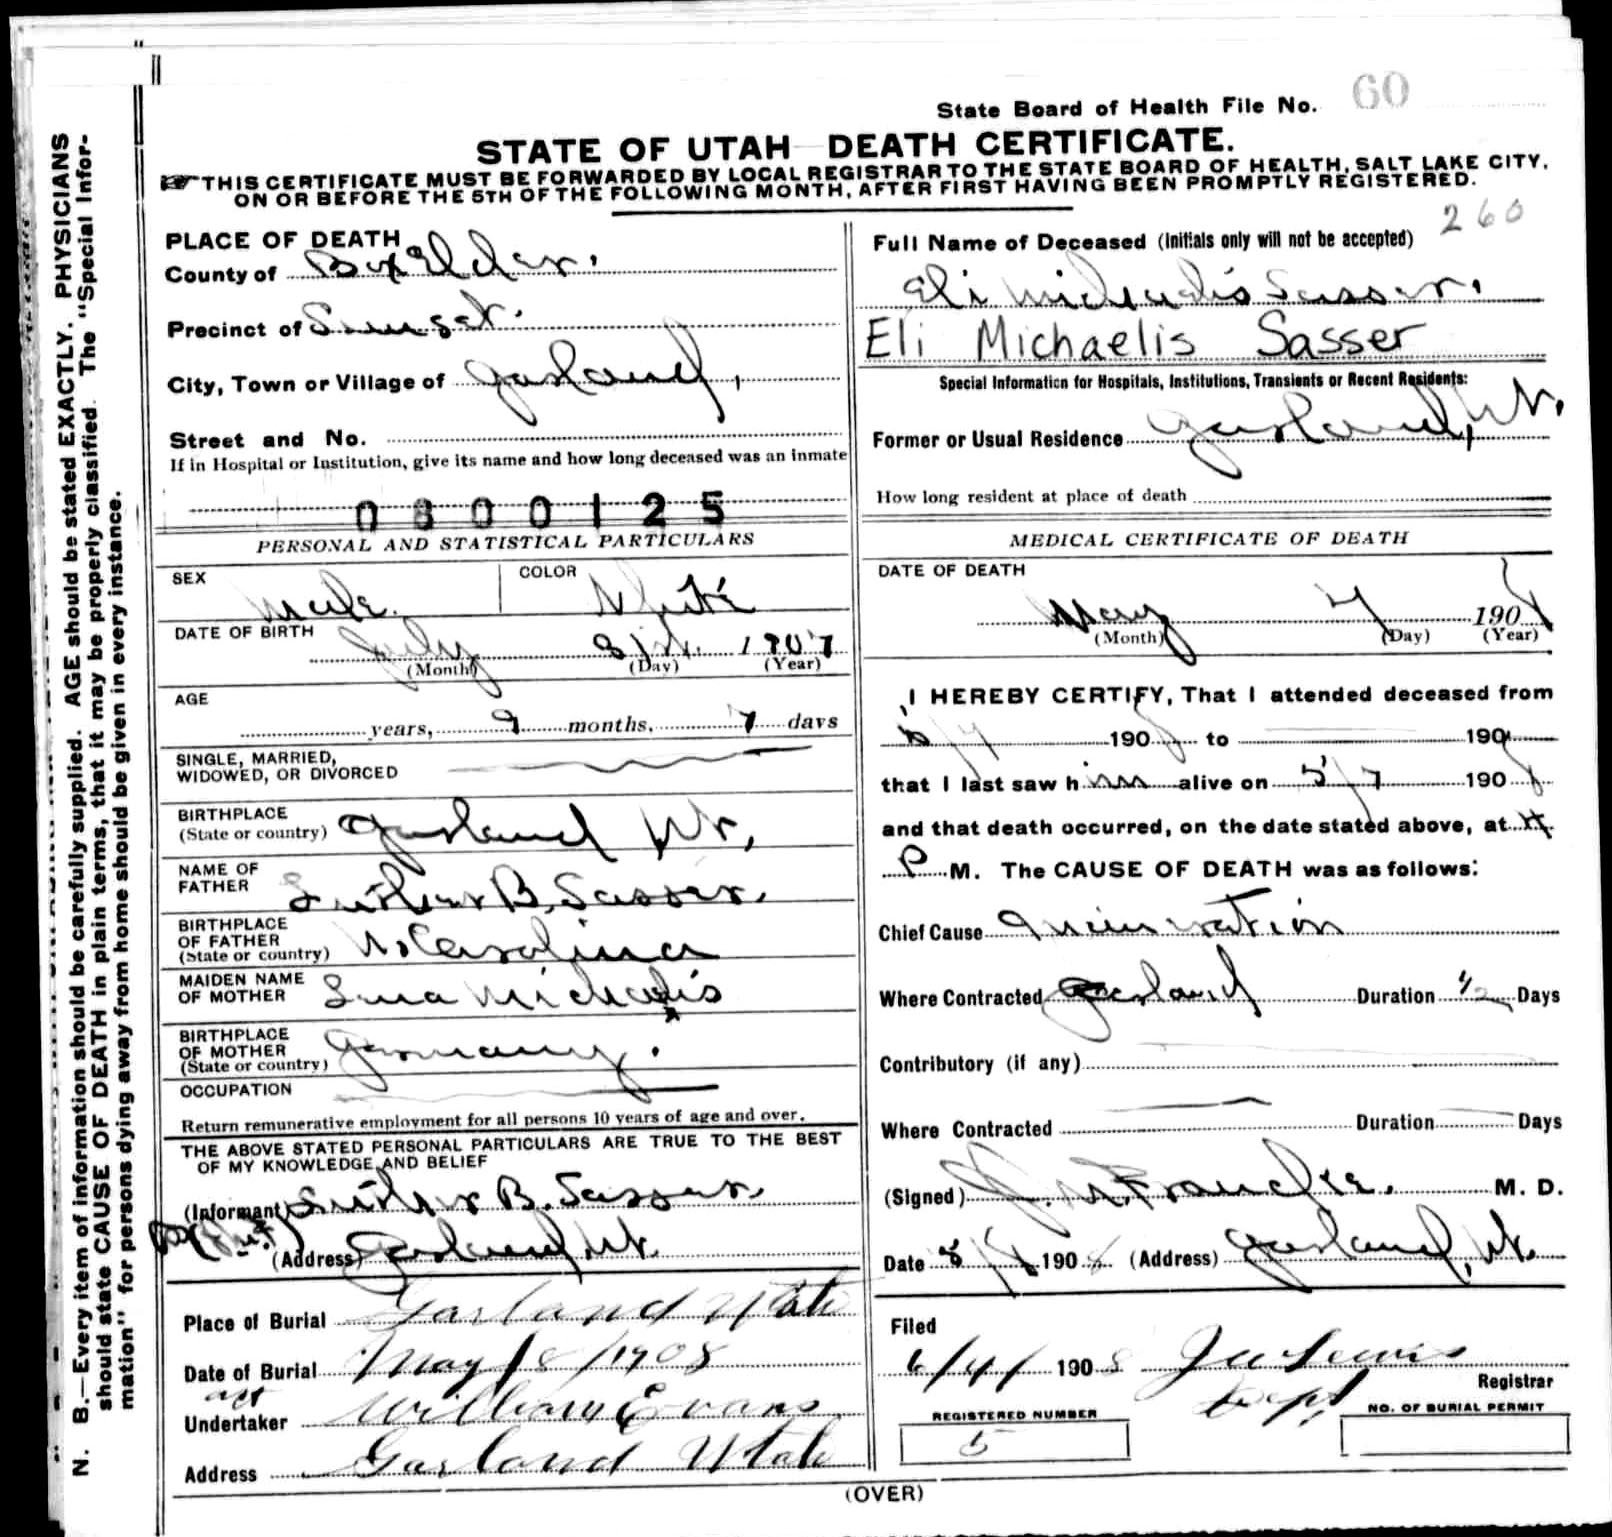 State Board of Health File No. 60
STATE OF UTAH DEATH CERTIFICATE.
THIS CERTIFICATE MUST BE FORWARDED BY LOCAL REGISTRAR TO THE STATE BOARD OF HEALTH, SALT LAKE CITY,
ON OR BEFORE THE 5TH OF THE FOLLOWING MONTH, AFTER FIRST HAVING BEEN PROMPTLY REGISTERED.
260
PLACE OF DEATH
County of Box Elder.
Precinct of Sunset.
City, Town or Village of Garland,
Street and No.
If in Hospital or Institution, give its name and how long deceased was an inmate
0800125
PERSONAL AND STATISTICAL PARTICULARS
SEX Male.
COLOR White
DATE OF BIRTH July 31st. 1907
(Month) (Day) (Year)
AGE
years, 9 months, 7 days
SINGLE, MARRIED,
WIDOWED, OR DIVORCED
BIRTHPLACE
(State or country) Garland Ut,
NAME OF
FATHER Luther B. Sasser.
BIRTHPLACE
OF FATHER
(State or country) N. Carolina
MAIDEN NAME
OF MOTHER Michaelis
BIRTHPLACE
OF MOTHER
(State or country) Germany.
OCCUPATION
Return remunerative employment for all persons 10 years of age and over.
THE ABOVE STATED PERSONAL PARTICULARS ARE TRUE TO THE BEST
OF MY KNOWLEDGE AND BELIEF
(Informant) Luther B. Sasser.
(Address) Garland, Ut.
Place of Burial Garland Utah
Date of Burial May / 8 / 1908
act
Undertaker William E Evans
Address Garland Utah
Full Name of Deceased (Initials only will not be accepted)
Eli Michaelis Sasser.
Eli Michaelis Sasser
Special Information for Hospitals, Institutions, Transients or Recent Residents:
Former or Usual Residence Garland, Ut.
How long resident at place of death
MEDICAL CERTIFICATE OF DEATH
DATE OF DEATH
May 7 1908
(Month) (Day) (Year)
I HEREBY CERTIFY, That I attended deceased from
5/7 1908 to 190
that I last saw him alive on 5/7 1908
and that death occurred, on the date stated above, at
P M. The CAUSE OF DEATH was as follows:
Chief Cause
Where Contracted Garland Duration 1/2 Days
Contributory (if any)
Where Contracted Duration Days
(Signed) J. M. Francke. M. D.
Date 5/8 1908 (Address) Garland, Ut.
Filed
6/4/ 1908 Lewis
Registrar
Dept
REGISTERED NUMBER
5
NO. OF BURIAL PERMIT
(OVER)
N. B.—Every item of information should be carefully supplied. AGE should be stated EXACTLY. PHYSICIANS
should state CAUSE OF DEATH in plain terms, that it may be properly classified. The "Special Infor-
mation" for persons dying away from home should be given in every instance.